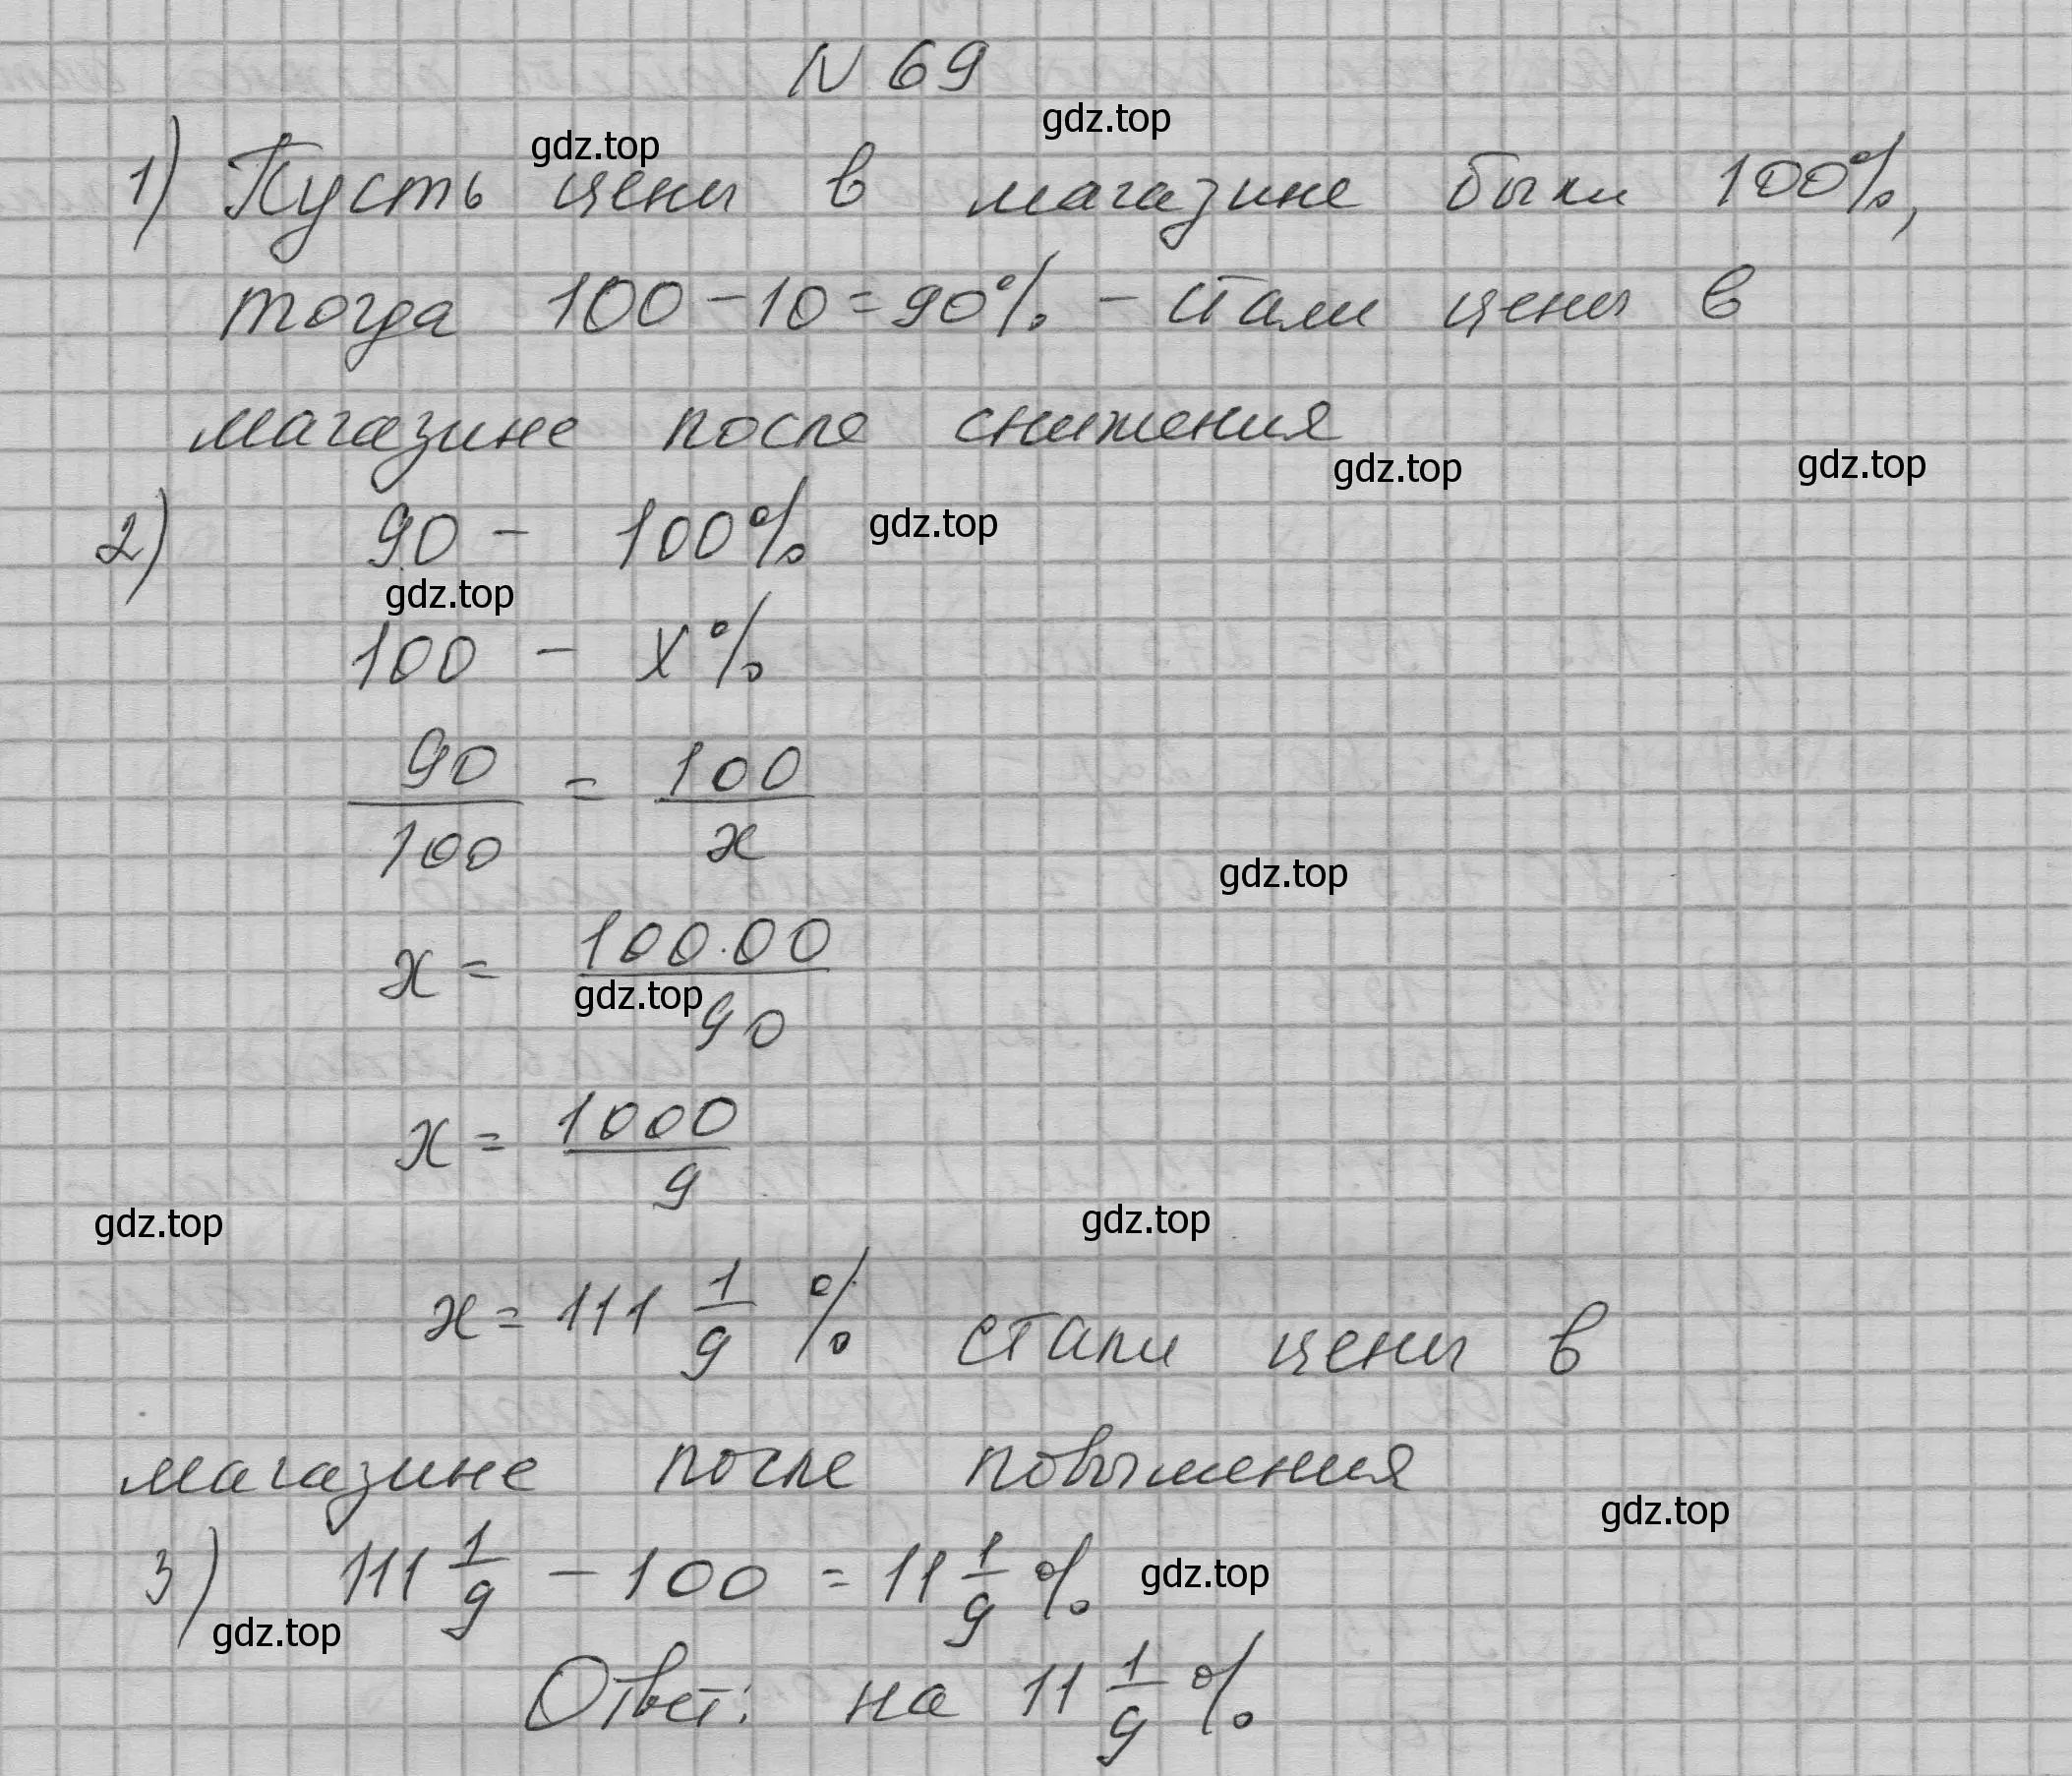 N 69
gdz.top
gdz.top
1) Пусть цены в магазине были 100%,
тогда 100 - 10 = 90% - стали цены в
магазине после снижения
gdz.top
gdz.top
2) 90 - 100%
gdz.top
gdz.top
100 - x%
90/100 = 100/x
gdz.top
x = 100·00/90
gdz.top
x = 1000/9
gdz.top
gdz.top
x = 111 1/9 % стали цены в
магазине после повышения
gdz.top
3) 111 1/9 - 100 = 11 1/9 %
gdz.top
gdz.top
Ответ: на 11 1/9 %